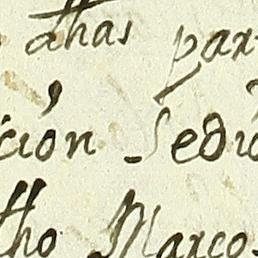 dhas par
ción Sedi
dho Marco